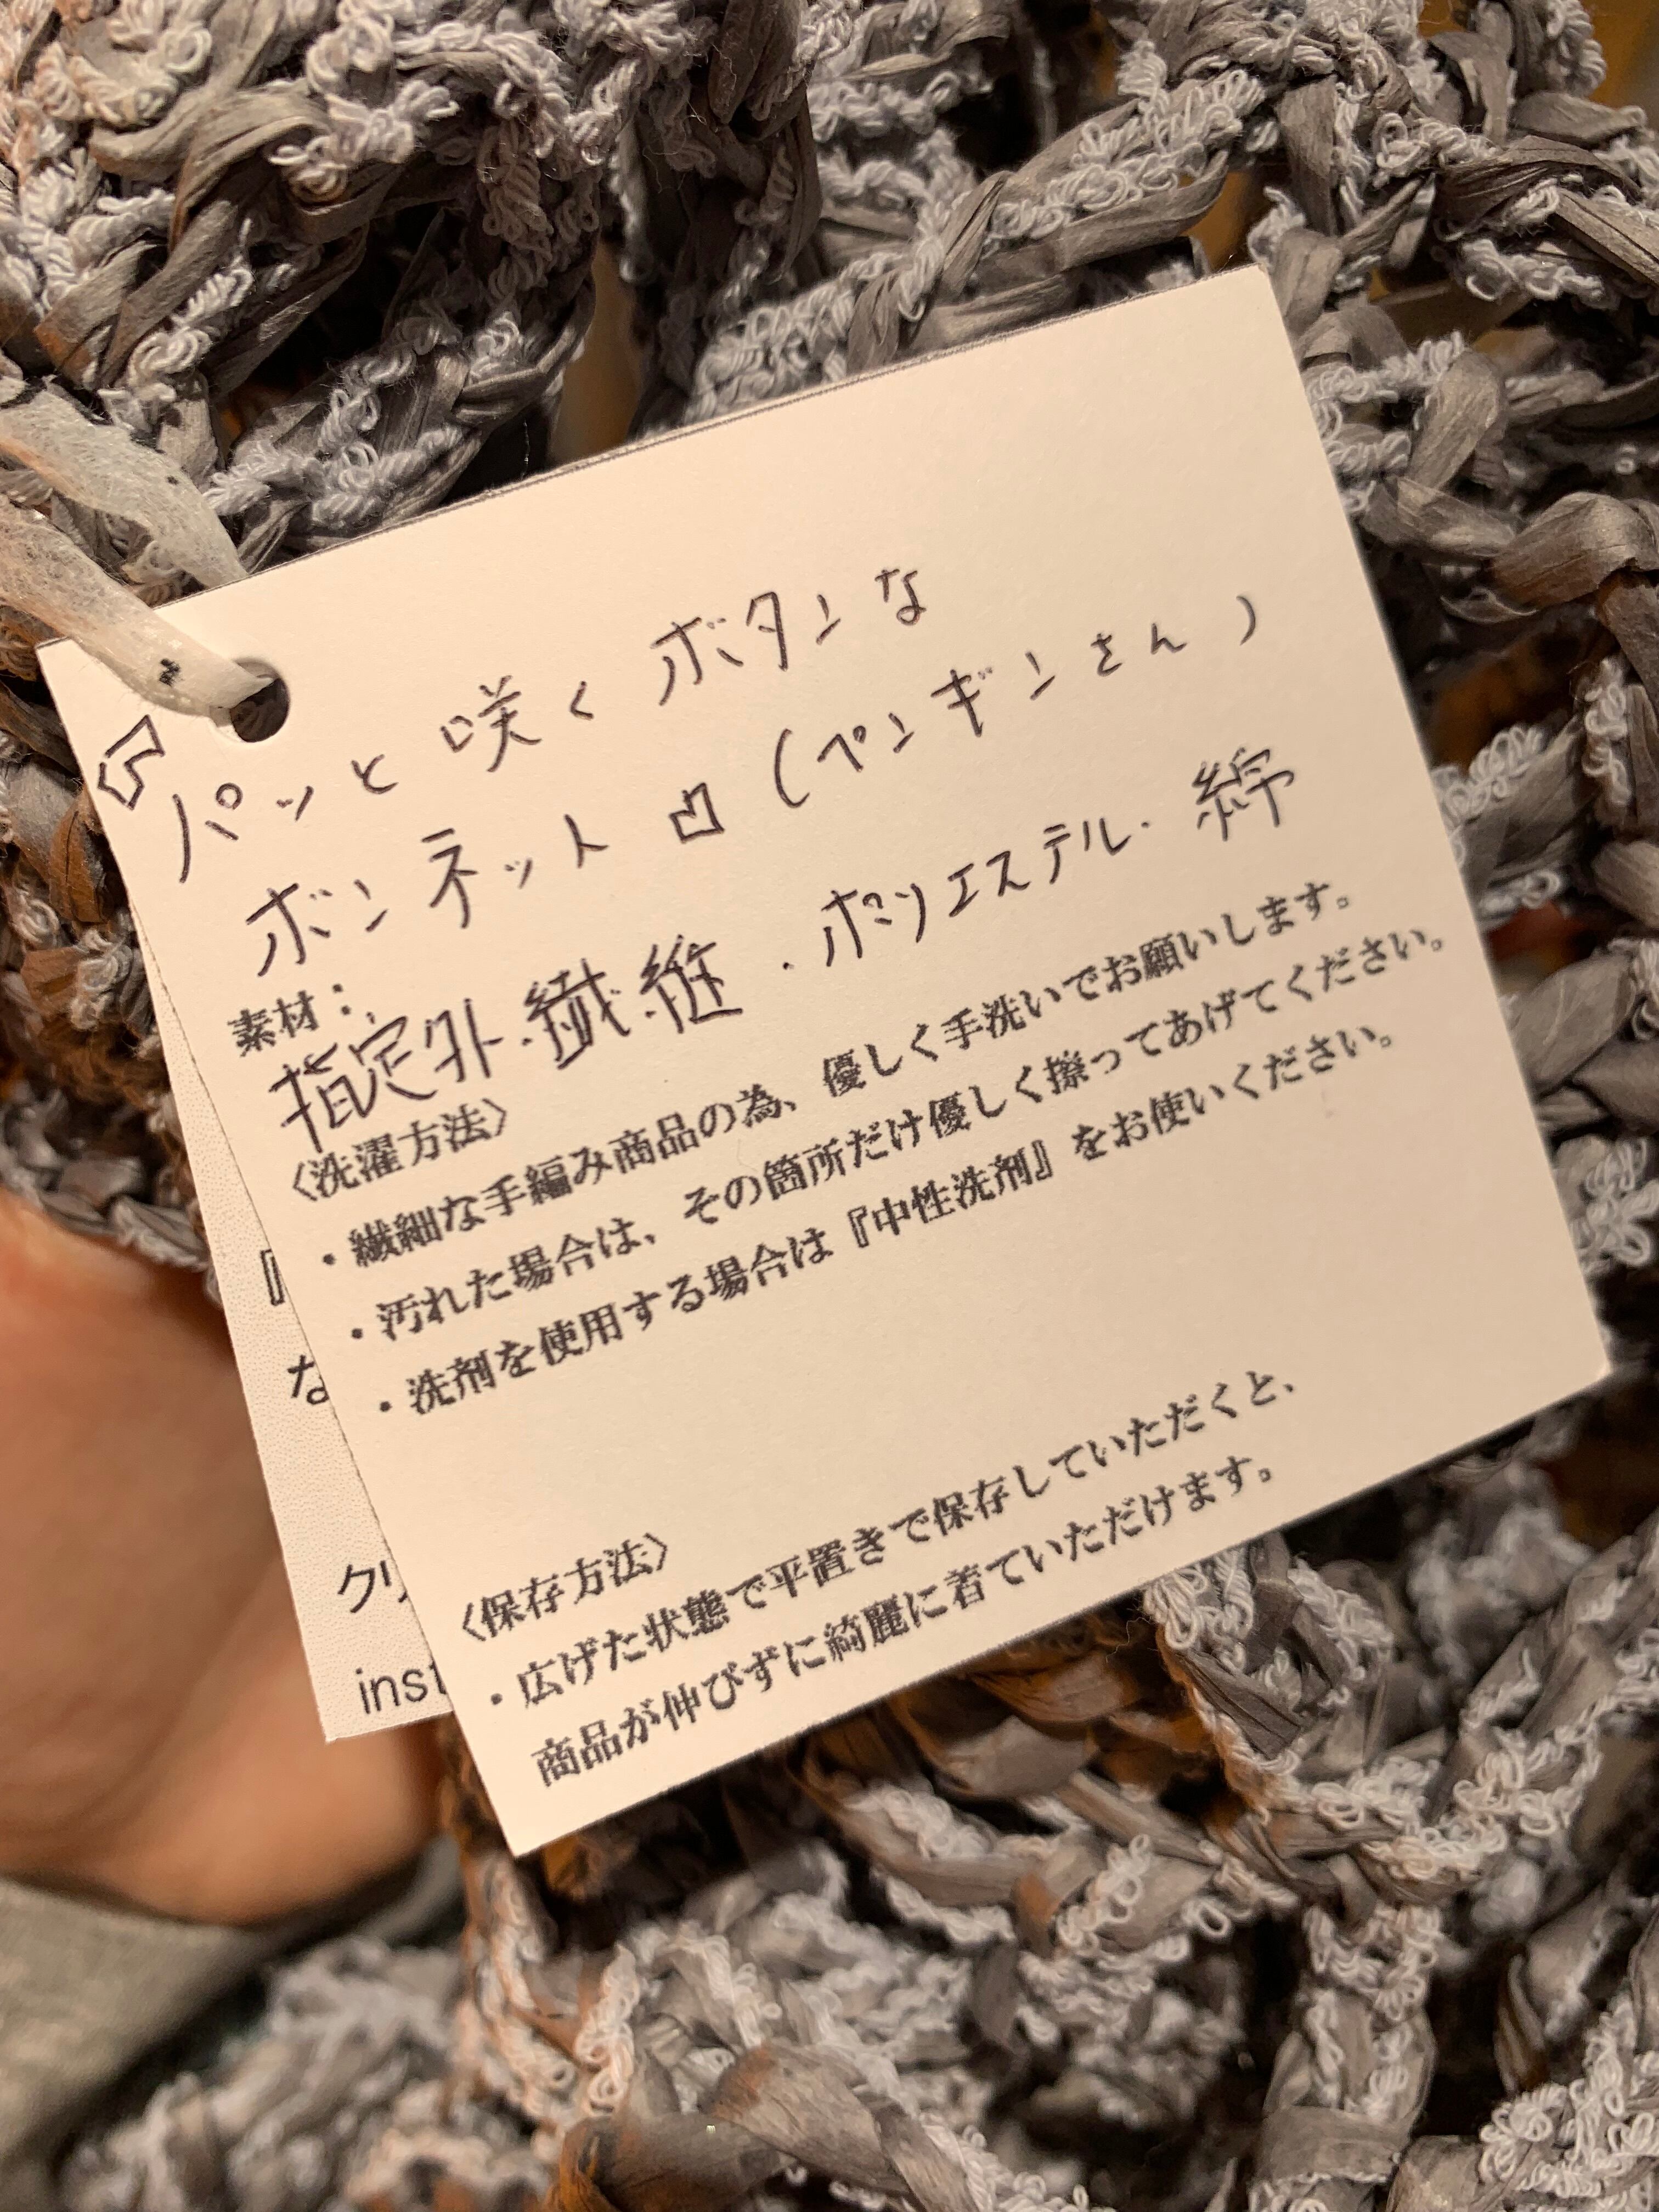 『パッと咲くボタンな
ボンネット』(ペンギンさん)
素材:
指定外繊維・ポリエステル・綿
〈洗濯方法〉
・繊細な手編み商品の為、優しく手洗いでお願いします。
・汚れた場合は、その箇所だけ優しく擦ってあげてください。
・洗剤を使用する場合は『中性洗剤』をお使いください。
〈保存方法〉
・広げた状態で平置きで保存していただくと、
商品が伸びずに綺麗に着ていただけます。
『
な
クリ
inst